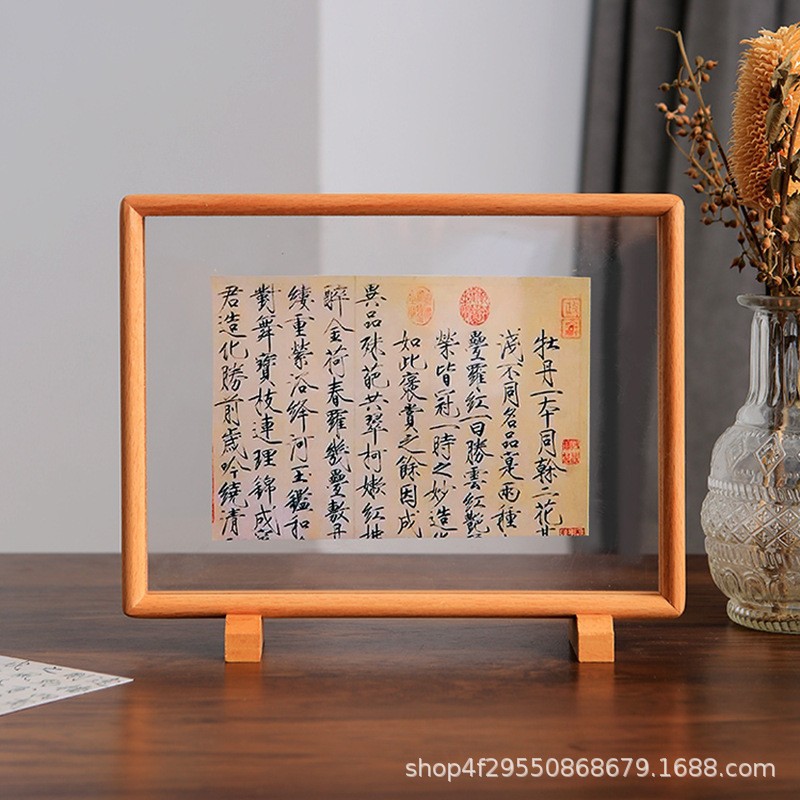 牡丹一本同幹二花
淺不同名品寔兩種
疊羅紅一曰勝雲紅艷
榮皆冠一時之妙造
如此褒賞之餘因成
異品殊葩共翠柯嫩紅拂
醉金荷春羅幾疊敷丹
縷重縈浴絳河玉鑑和
對舞寶枝連理錦成
君造化勝前歲吟繞清
shop4f29550868679.1688.com